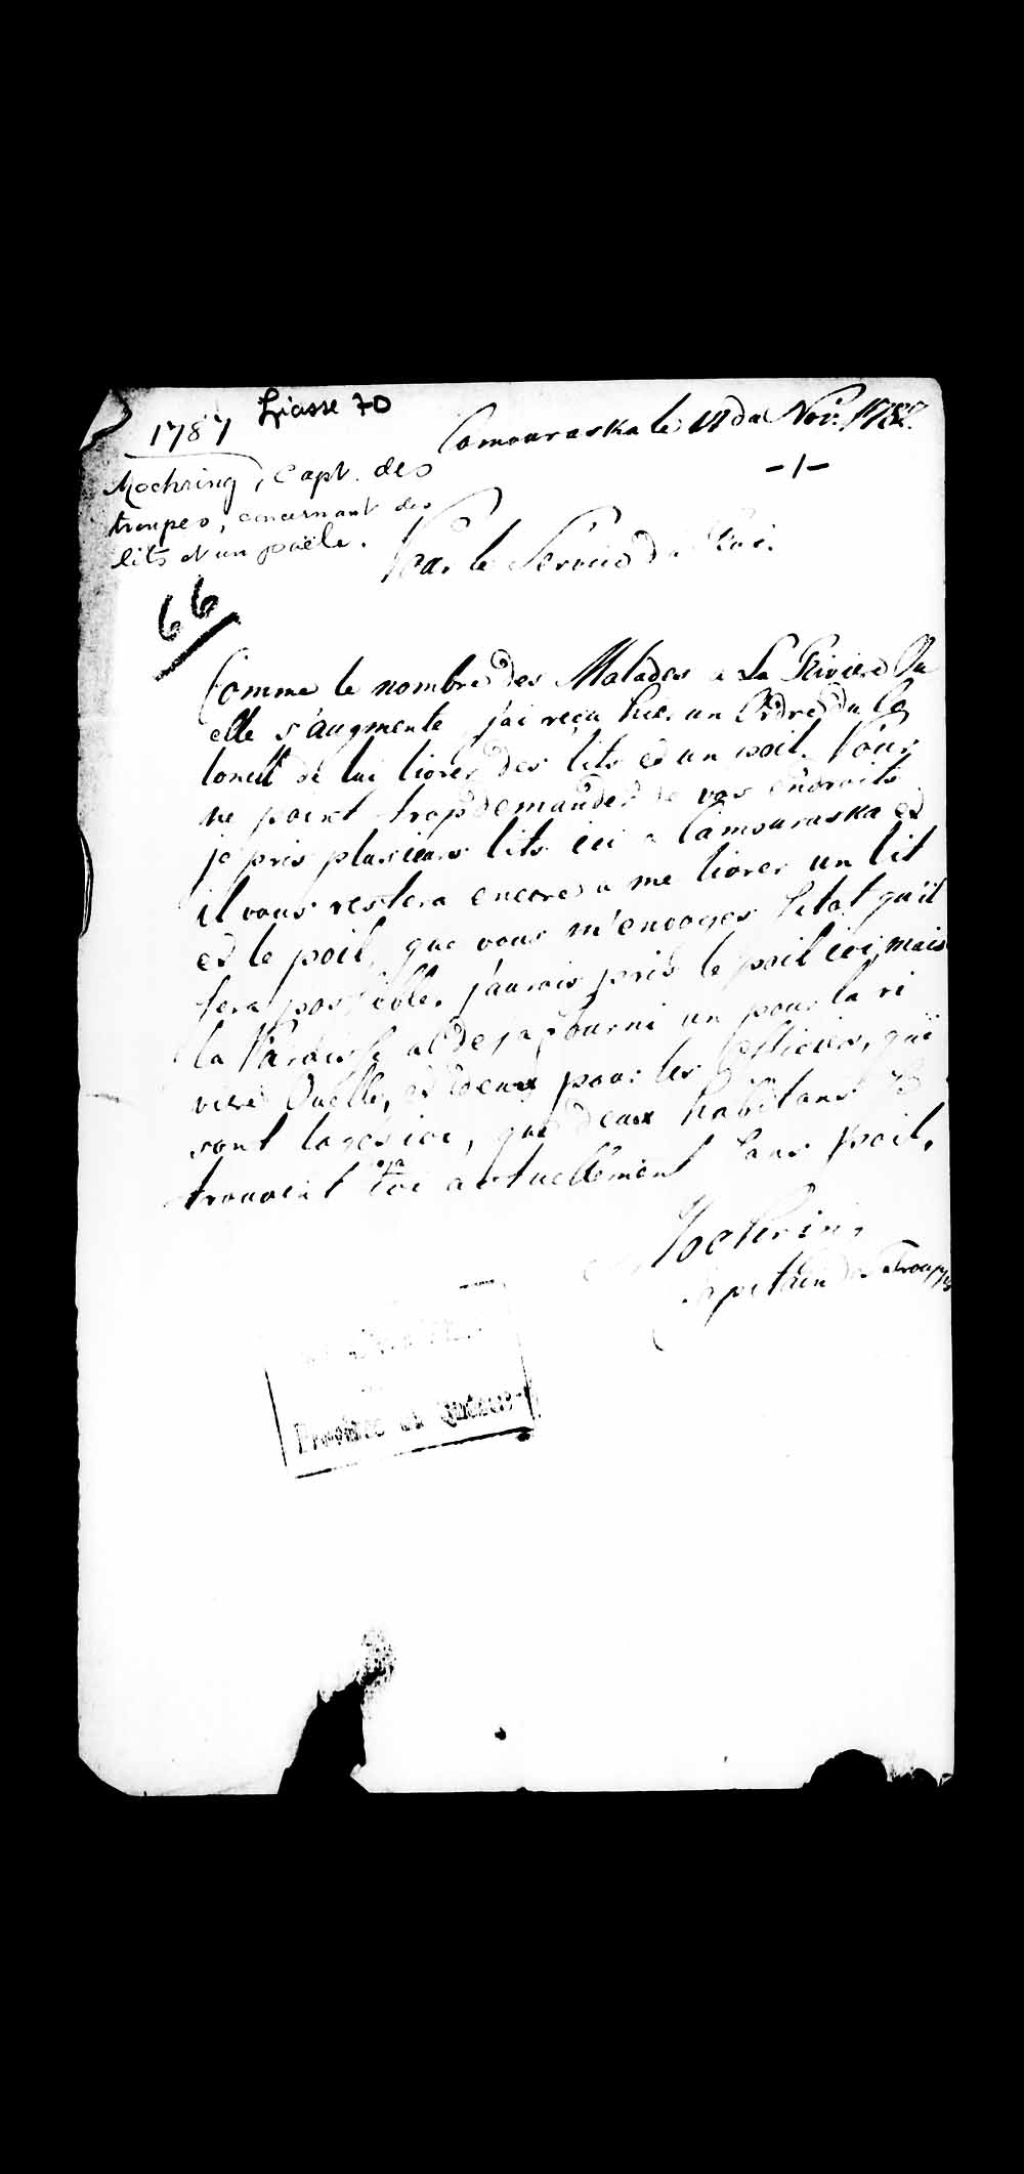 1787 Liasse 70
Camouraska le 11 du Nov. 1782.
-1-
Moehring, Capt. des
troupes, concernant des
lits et un poële.
Par le Service du Roi.
66
Comme le nombre des Malades a La Riviere Ou
elle s'augmente j'ai reçu hier un Ordre du Co
lonell de lui livrer des lits ed un poil. Pour
ne point trop demander de vos endroits
je pris plusieurs lits ici a Camouraska ed
il vous restera encore a me livrer un lit
ed le poil, que vous m'envoyes sitot qu'il
sera possible. j'aurois pris le poil ici, mais
la Paroisse a deja fourni un pour la ri
viere Ouelle, ed deux pour les officiers, qui
sont logés ici, que deux habitans se
trouvent ici actuellement sans poil.
Moehring
Capitain des Troupes
Province de Quebec